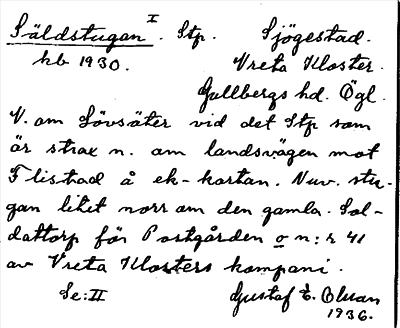 Säldstugan I. Stp. Sjögestad.
kb 1930. Vreta Kloster.
Gullbergs hd. Ögl.
V. om Lövsäter vid det Stp som
är strax n. om landsvägen mot
Flistad å ek-kartan. Nuv. stu-
gan litet norr om den gamla. Sol-
dattorp för Postgården o n:r 41
av Vreta Klosters kompani.
Se: II Gustaf E. Olsson
1936.